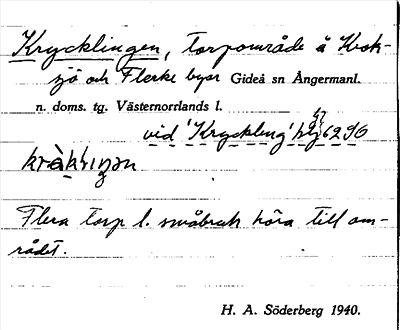 Krycklingen, torpområde å Kvok-
sjö och Flerke byar Gideå sn Ångermanl.
n. doms. tg. Västernorrlands l.
vid 'Kryckling' 6296
Flera torp l. småbruk höra till om-
rådet.
H. A. Söderberg 1940.